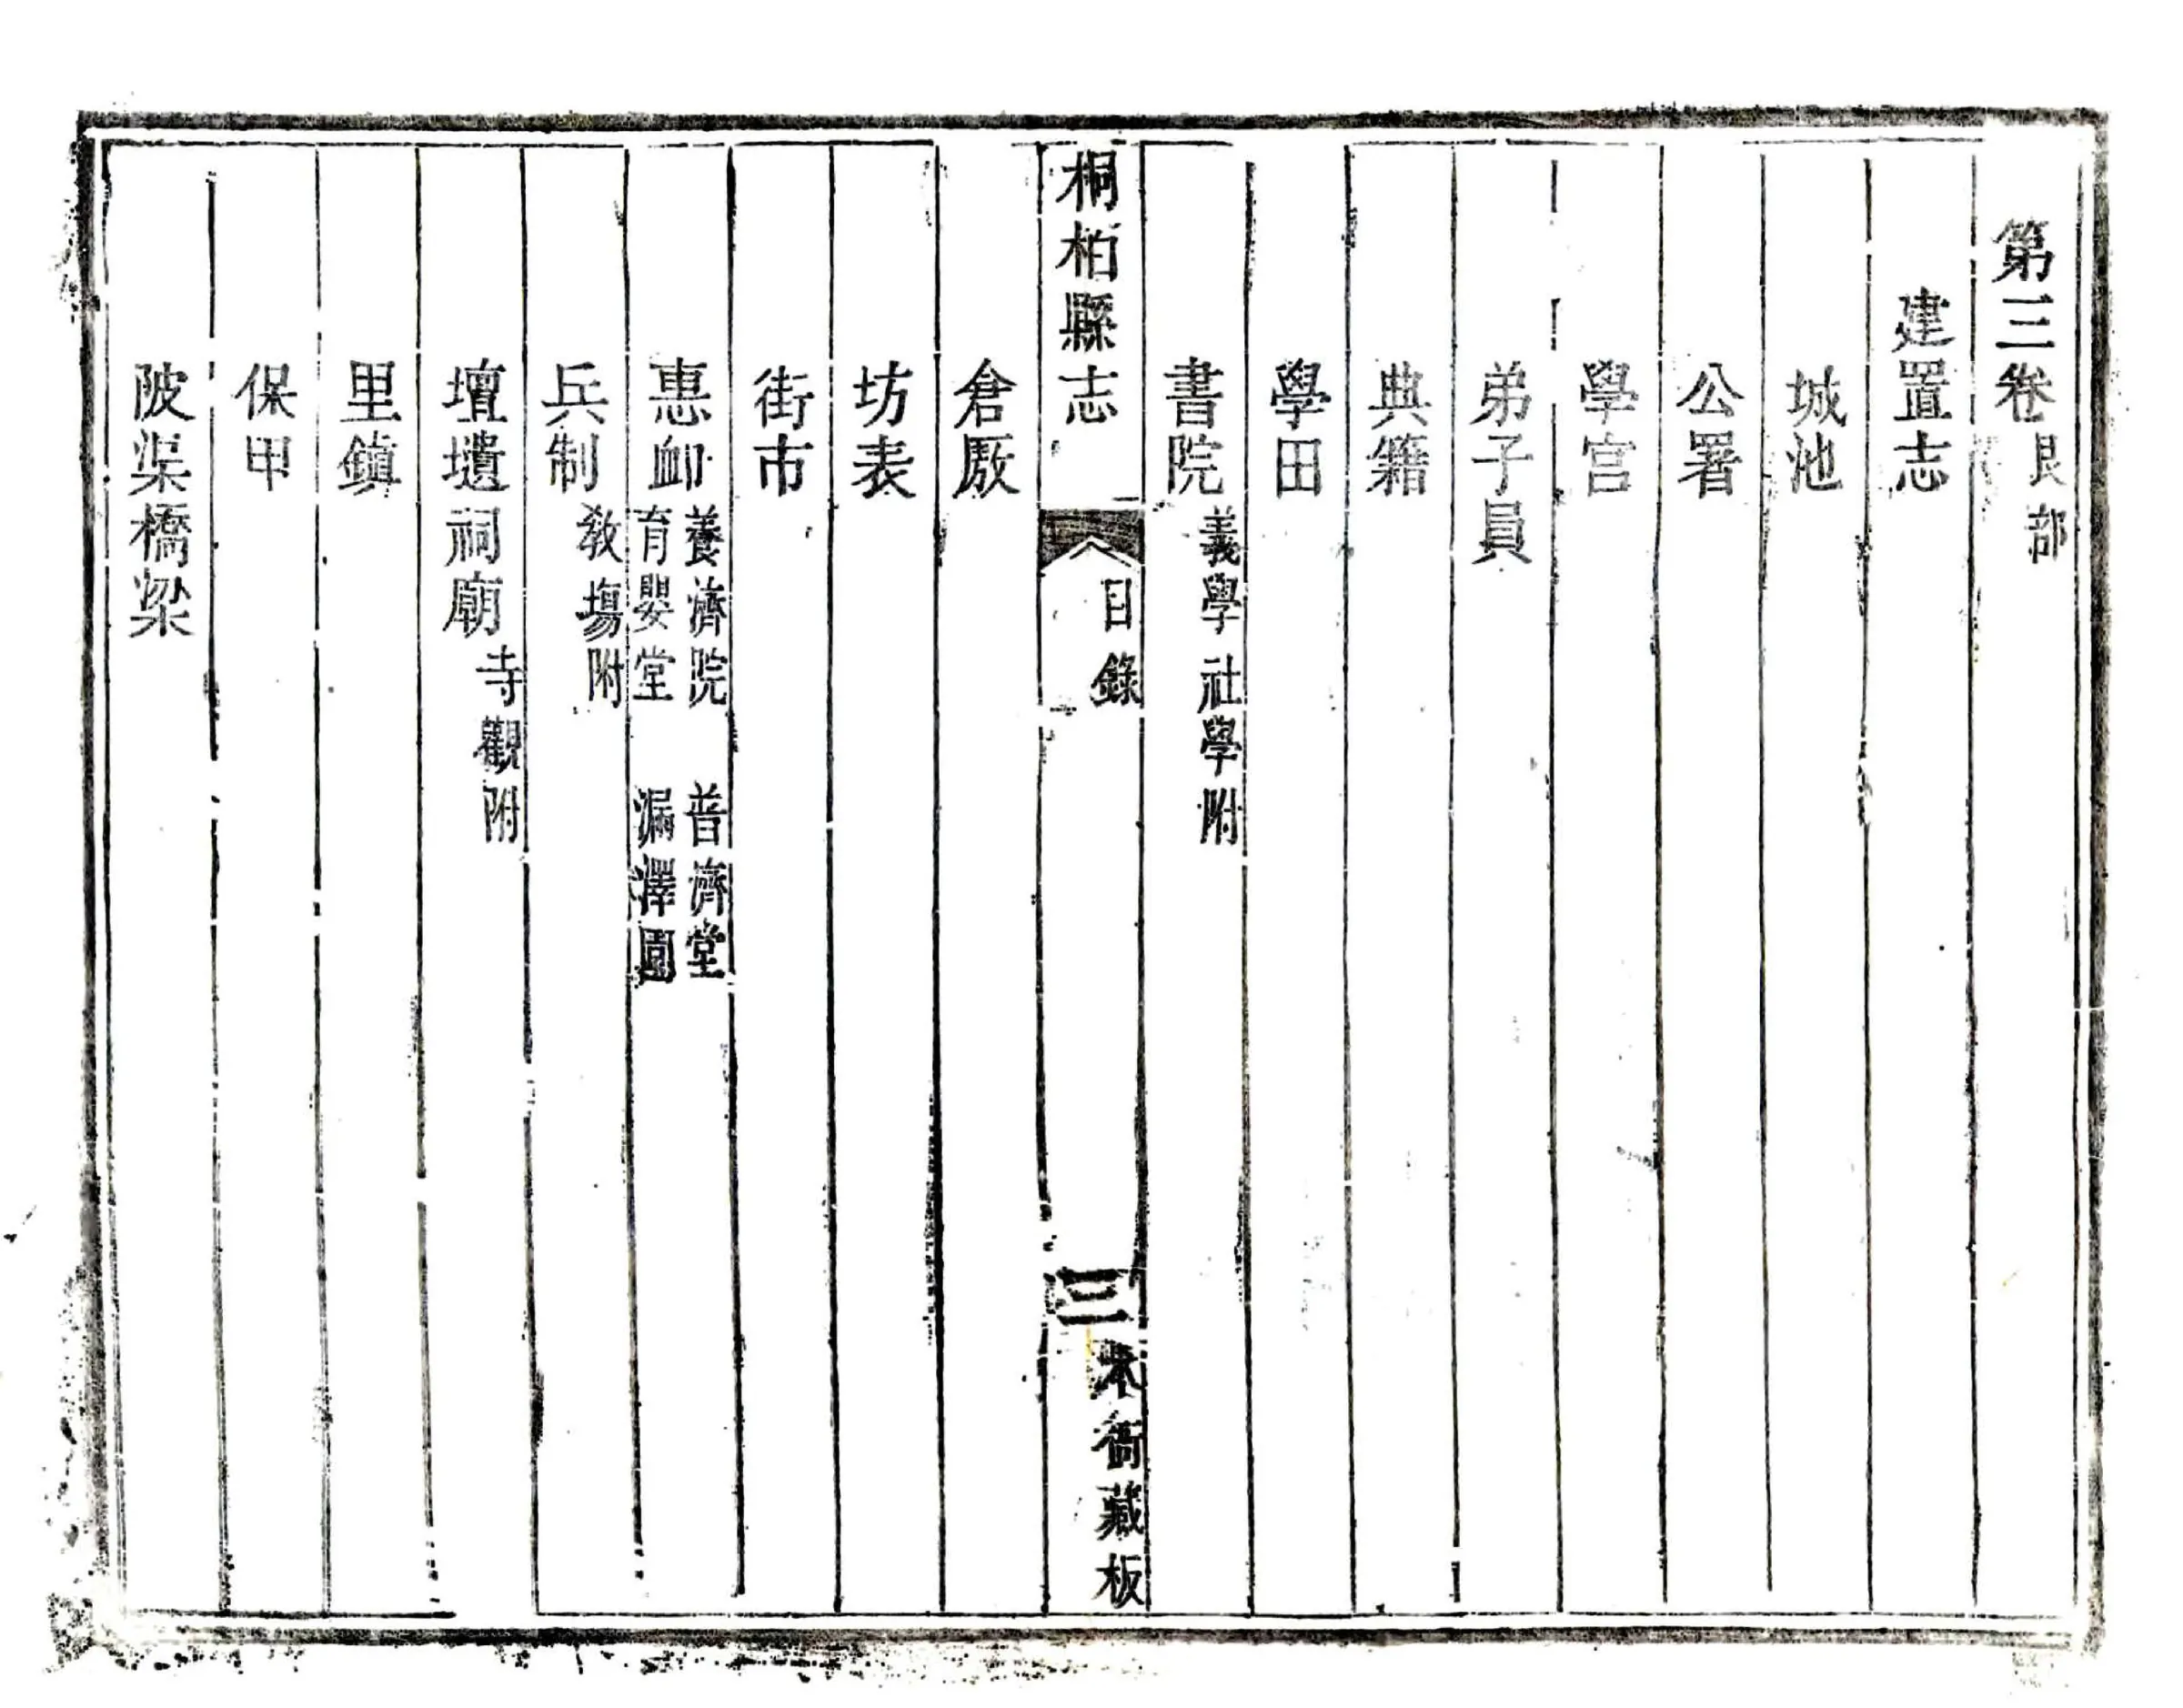 第三卷艮部
建置志
城池
公署
學宮
弟子員
典籍
學田
書院義學社學附
桐柏縣志
目錄
三
本衙藏板
倉厫
坊表
街市
惠卹養濟院 普濟堂
育嬰堂 漏澤園
兵制教場附
壇壝祠廟寺觀附
里鎮
保甲
陂渠橋梁